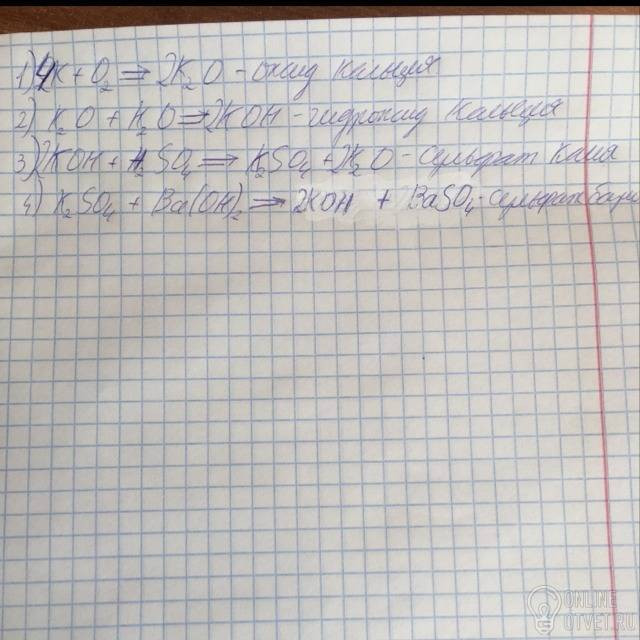 1) 4K + O₂ ⇒ 2K₂O - оксид кальция
2) K₂O + H₂O ⇒ 2KOH - гидроксид кальция
3) 2KOH + H₂SO₄ ⇒ K₂SO₄ + 2H₂O - сульфат калия
4) K₂SO₄ + Ba(OH)₂ ⇒ 2KOH + BaSO₄ - сульфат бари
ONLINE
OTVET.RU